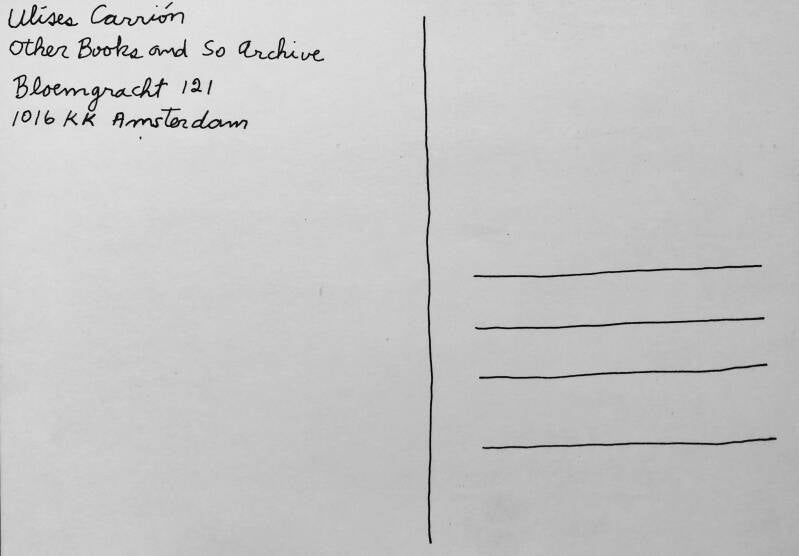 Ulises Carrión
Other Books and So Archive
Bloemgracht 121
1016 KK Amsterdam